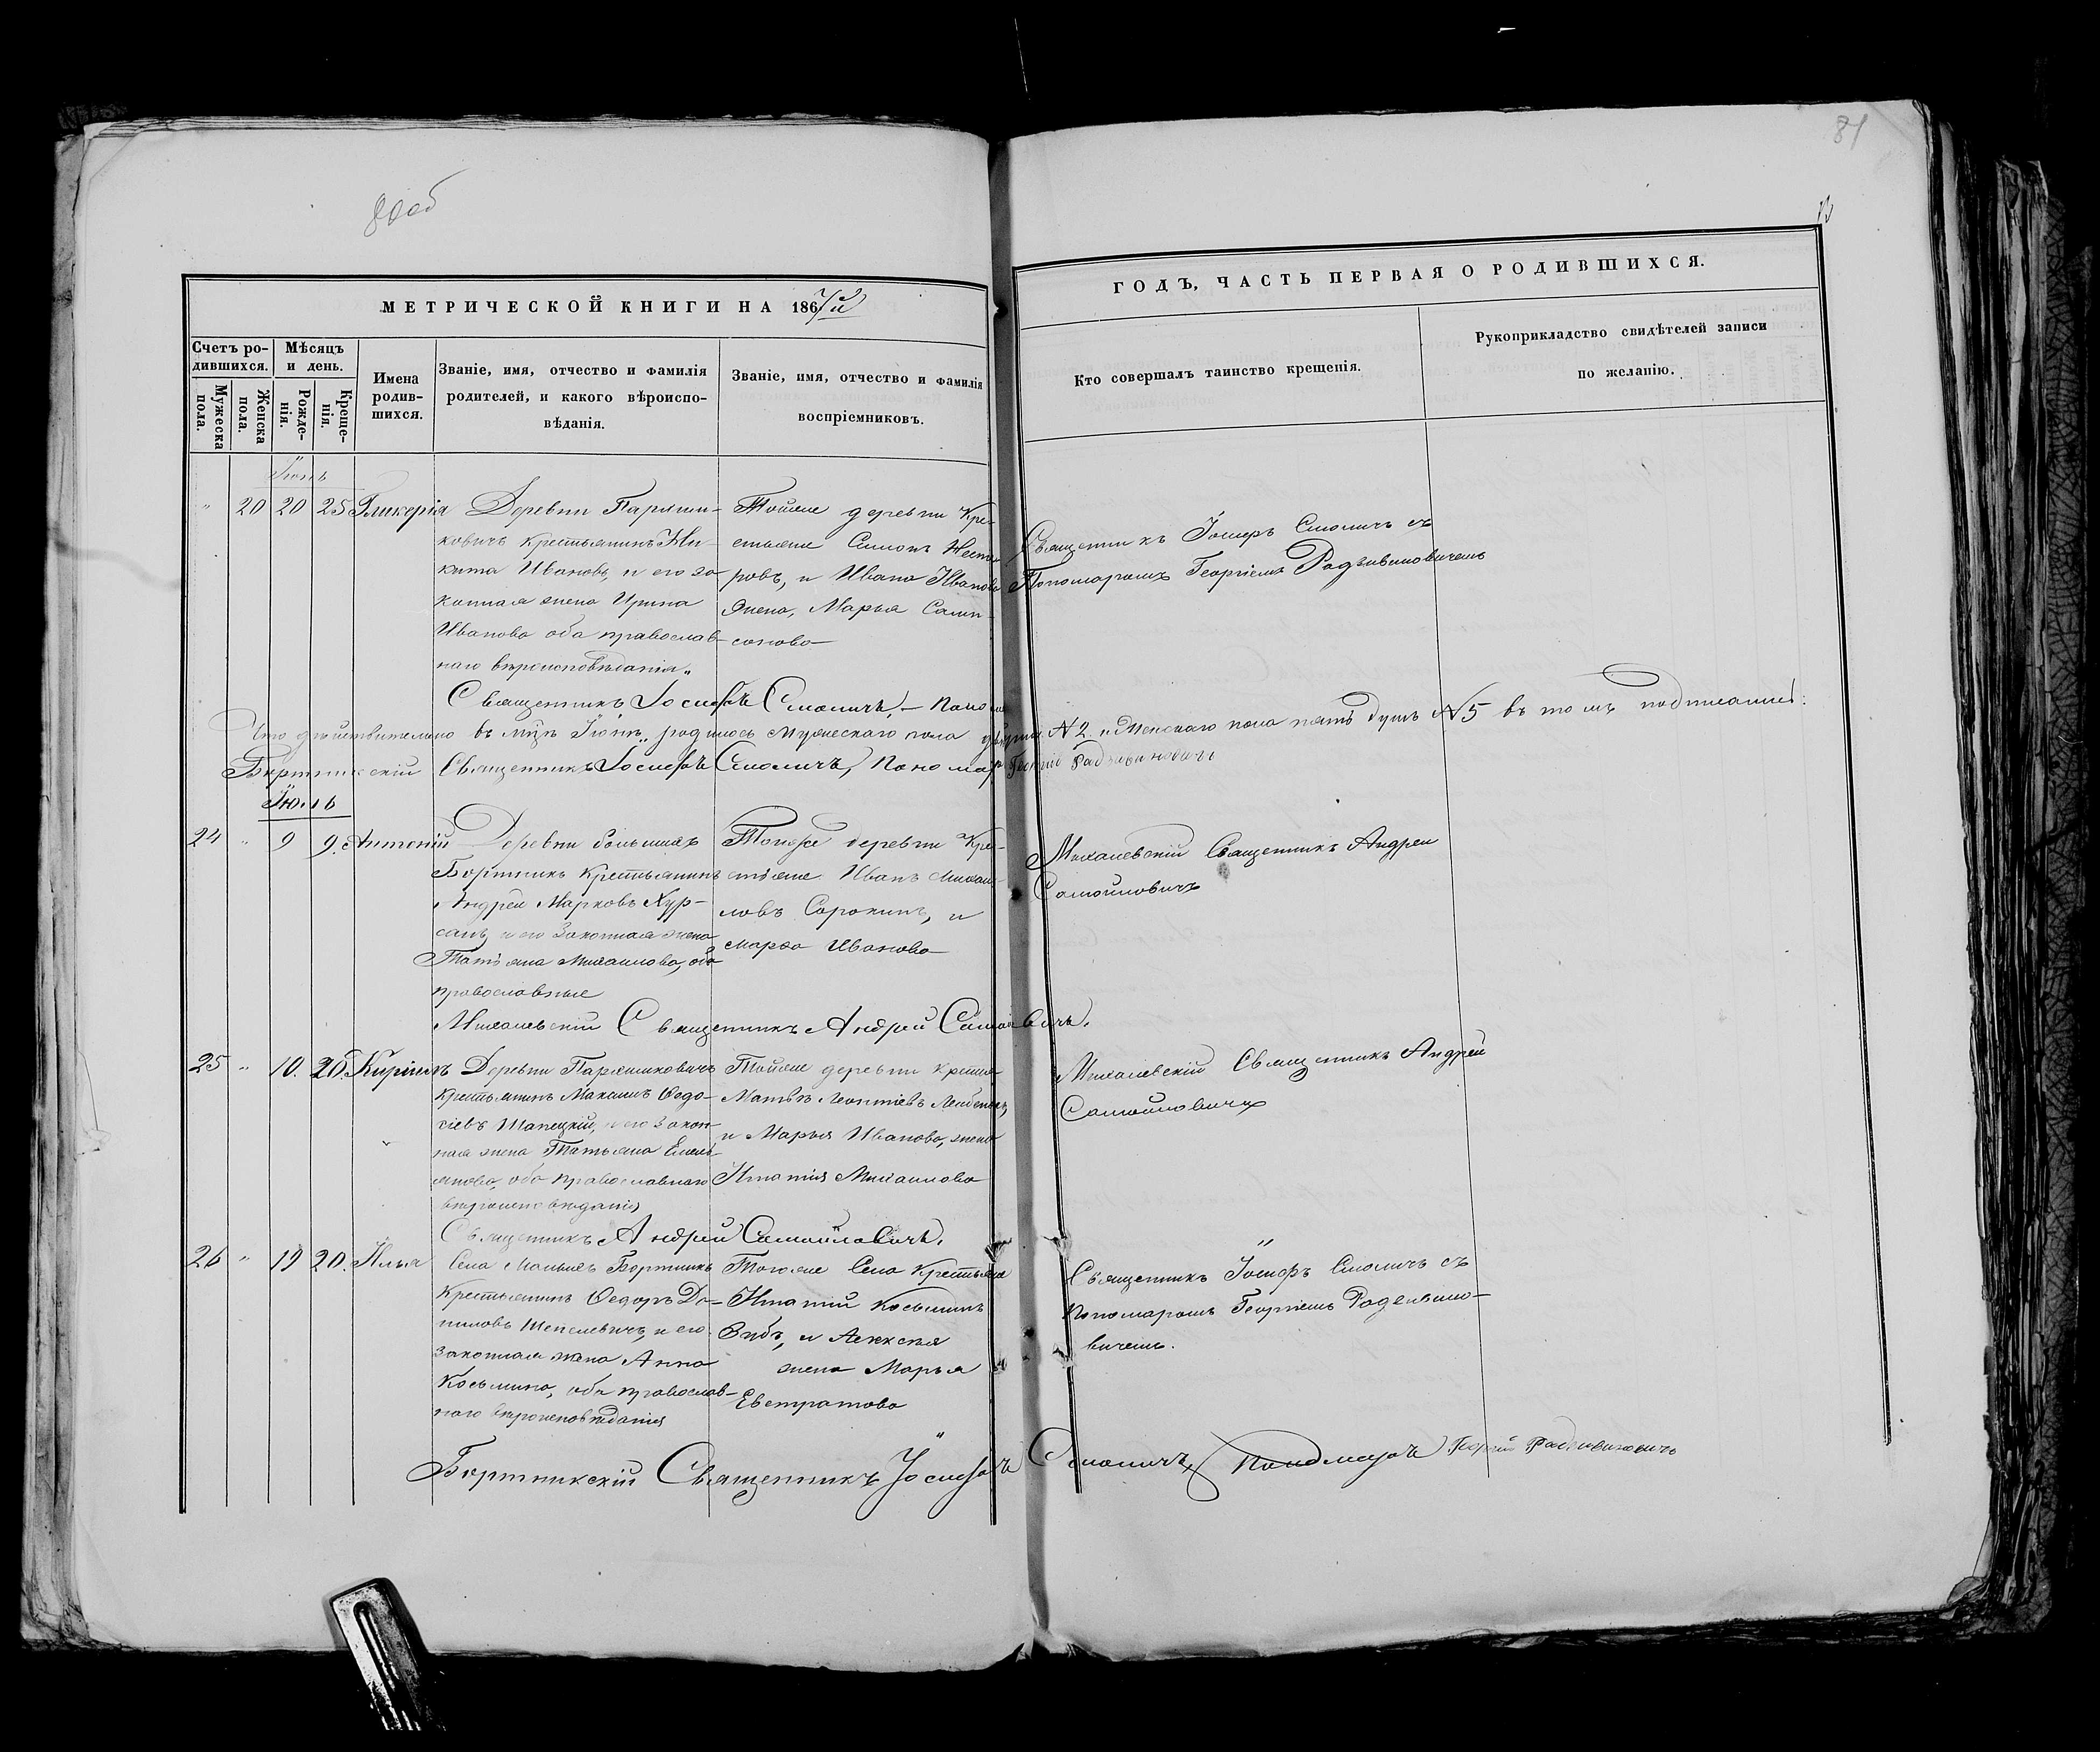 80об
81
МЕТРИЧЕСКОЙ КНИГИ НА 1867й
ГОДЪ, ЧАСТЬ ПЕРВАЯ О РОДИВШИХСЯ.
Счетъ ро-
дившихся.
Мужеска
пола.
Женска
пола.
Мѣсяцъ
и день.
Рожде-
нія.
Креще-
нія.
Имена
родив-
шихся.
Званіе, имя, отчество и фамилія
родителей, и какого вѣроиспо-
вѣданія.
Званіе, имя, отчество и фамилія
воспріемниковъ.
Кто совершалъ таинство крещенія.
Рукоприкладство свидѣтелей записи
по желанію.
Іюнь
" 20 20 25 Гликерія
Деревни
ковичъ крестьянинъ Ни-
кита Ивановъ, и его за-
конная жена Ирина
Иванова оба православ-
наго вѣроисповѣданія„
Тойже деревни Кре-
стьяне Симонъ Несте
ровъ, и Ивана Иванова
жена, Марья Самп-
сонова
Священникъ Іосифъ Смоличъ съ
Пономаромъ Георгіемъ
Священникъ Іосифъ Смоличъ,
Что дѣйствительно въ мцѣ Іюнѣ„ родилось мужескаго пола N 2. и Женскаго пола пять душъ N5 въ томъ
Священникъ Іосифъ Смоличъ, Пономар Георгій
Іюль
24 " 9 9. Антоній
Деревни большихъ
Бортникъ Крестьянинъ
Андрей Марковъ Хур-
санъ, и его Законная жена
Татьяна Михаилова, оба
православные
Тойже деревни Кре-
стьяне Иванъ Михаи-
ловъ Сорокинъ, и
Марѳа Иванова
Михалевскій Священникъ Андрей
Самойловичъ
Михалевскій Священникъ Андрей
25 " 10. 20.
Деревни
Крестьянинъ Максимъ Ѳедо-
сіевъ и его Закон-
ная жена Татьяна Емель-
янова, оба православнаго
вѣроисповѣданія
Тойже деревни
Матвѣй Леонтіевъ
и Марья Иванова, жена
Игнатія Михаилова
Михалевскій Священникъ Андрей
Самойловичъ
Священникъ Андрей Самойловичъ.
26 " 19 20. Илья
Села Малыхъ Бортникъ
Крестьянинъ Ѳедоръ Да-
ниловъ и его
законная жена Анна
Косьмина, оба православ-
наго вѣроисповѣданія
Тогоже Села Крестьяне
Игнатій Косьминъ
и Алексѣя
жена Марья
Евстратова
Священникъ Іосифъ Смоличъ съ
пономаромъ Георгіемъ
вичемъ.
Священникъ Іосифъ Смоличъ, Пономаръ Георгій